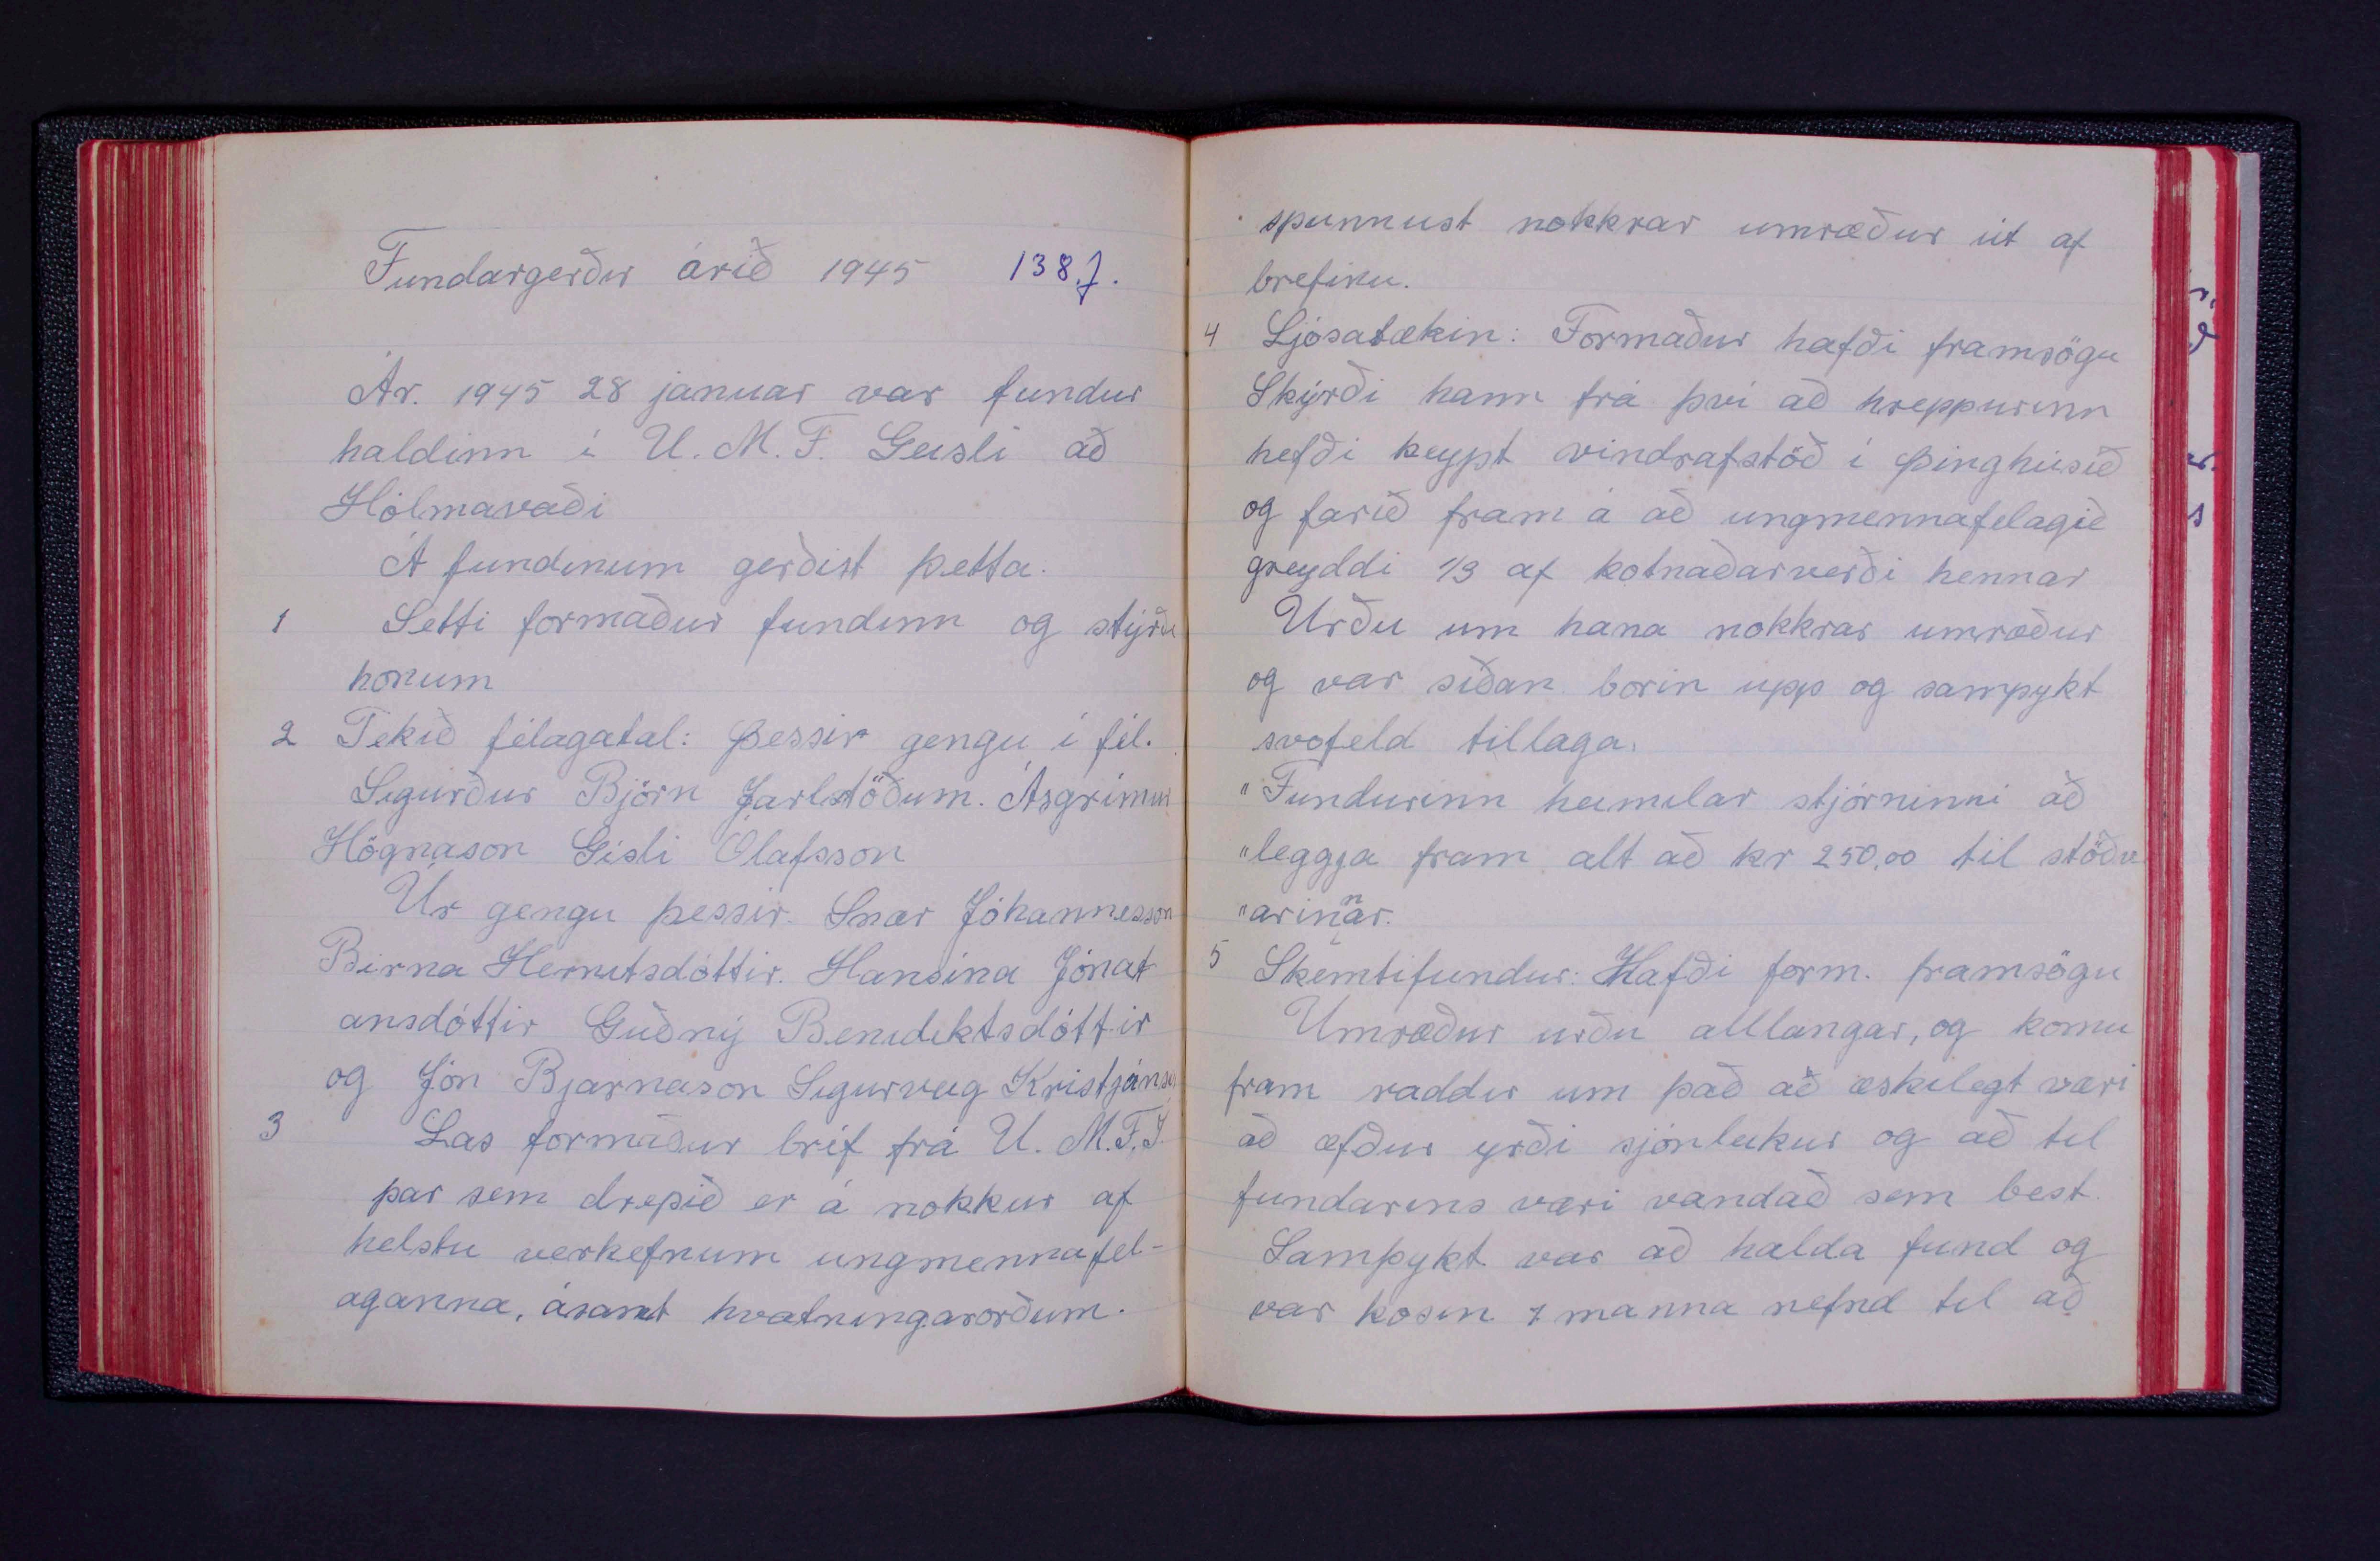 Fundargerðir árið 1945 138.f.
Ár. 1945 28 januar var fundur
haldinn í U. M. F. Geisli að
Hólmavaði
Á fundinum gerðist þetta.
1 Setti formaður fundinn og stýrði
honum
2 Tekið félagatal: Þessir gengu í fél.
Sigurður Björn Jarlstöðum. Ásgrímur
Högnason Gísli Olafsson
Úr gengu þessir. Snær Jóhannesson
Birna Hernitsdóttir. Hansína Jónat
ansdóttir Guðný Benidiktsdóttir
og Jón Bjarnason Sigurveig Kristjáns
3 Las formaður bréf frá U. M. F. Í.
þar sem drepið er á nokkur af
helstu verkefnum ungmennafel-
aganna, ásamt hvatningarorðum.
spunnust nokkrar umræður út af
brefinu.
4 Ljósatækin: Formaður hafði framsögu
Skýrði hann frá því að hreppurinn
hefði keypt vindrafstöð í þinghúsið
og farið fram á að ungmennafelagið
greyddi 1/3 af kotnaðarverði hennar
Urðu um hana nokkrar umræður
og var síðan borin upp og samþykt
svofeld tillaga.
"Fundurinn heimilar stjórninni að
"leggja fram alt að kr 250,00 til stöðv
"arinnar.
5 Skemtifundur: Hafði form. framsögu
Umræður urðu alllangar, og komu
fram raddir um það að æskilegt væri
að æfður yrði sjónleikur og að til
fundarins væri vandað sem best.
Samþykt var að halda fund og
var kosin 7 manna nefnd til að